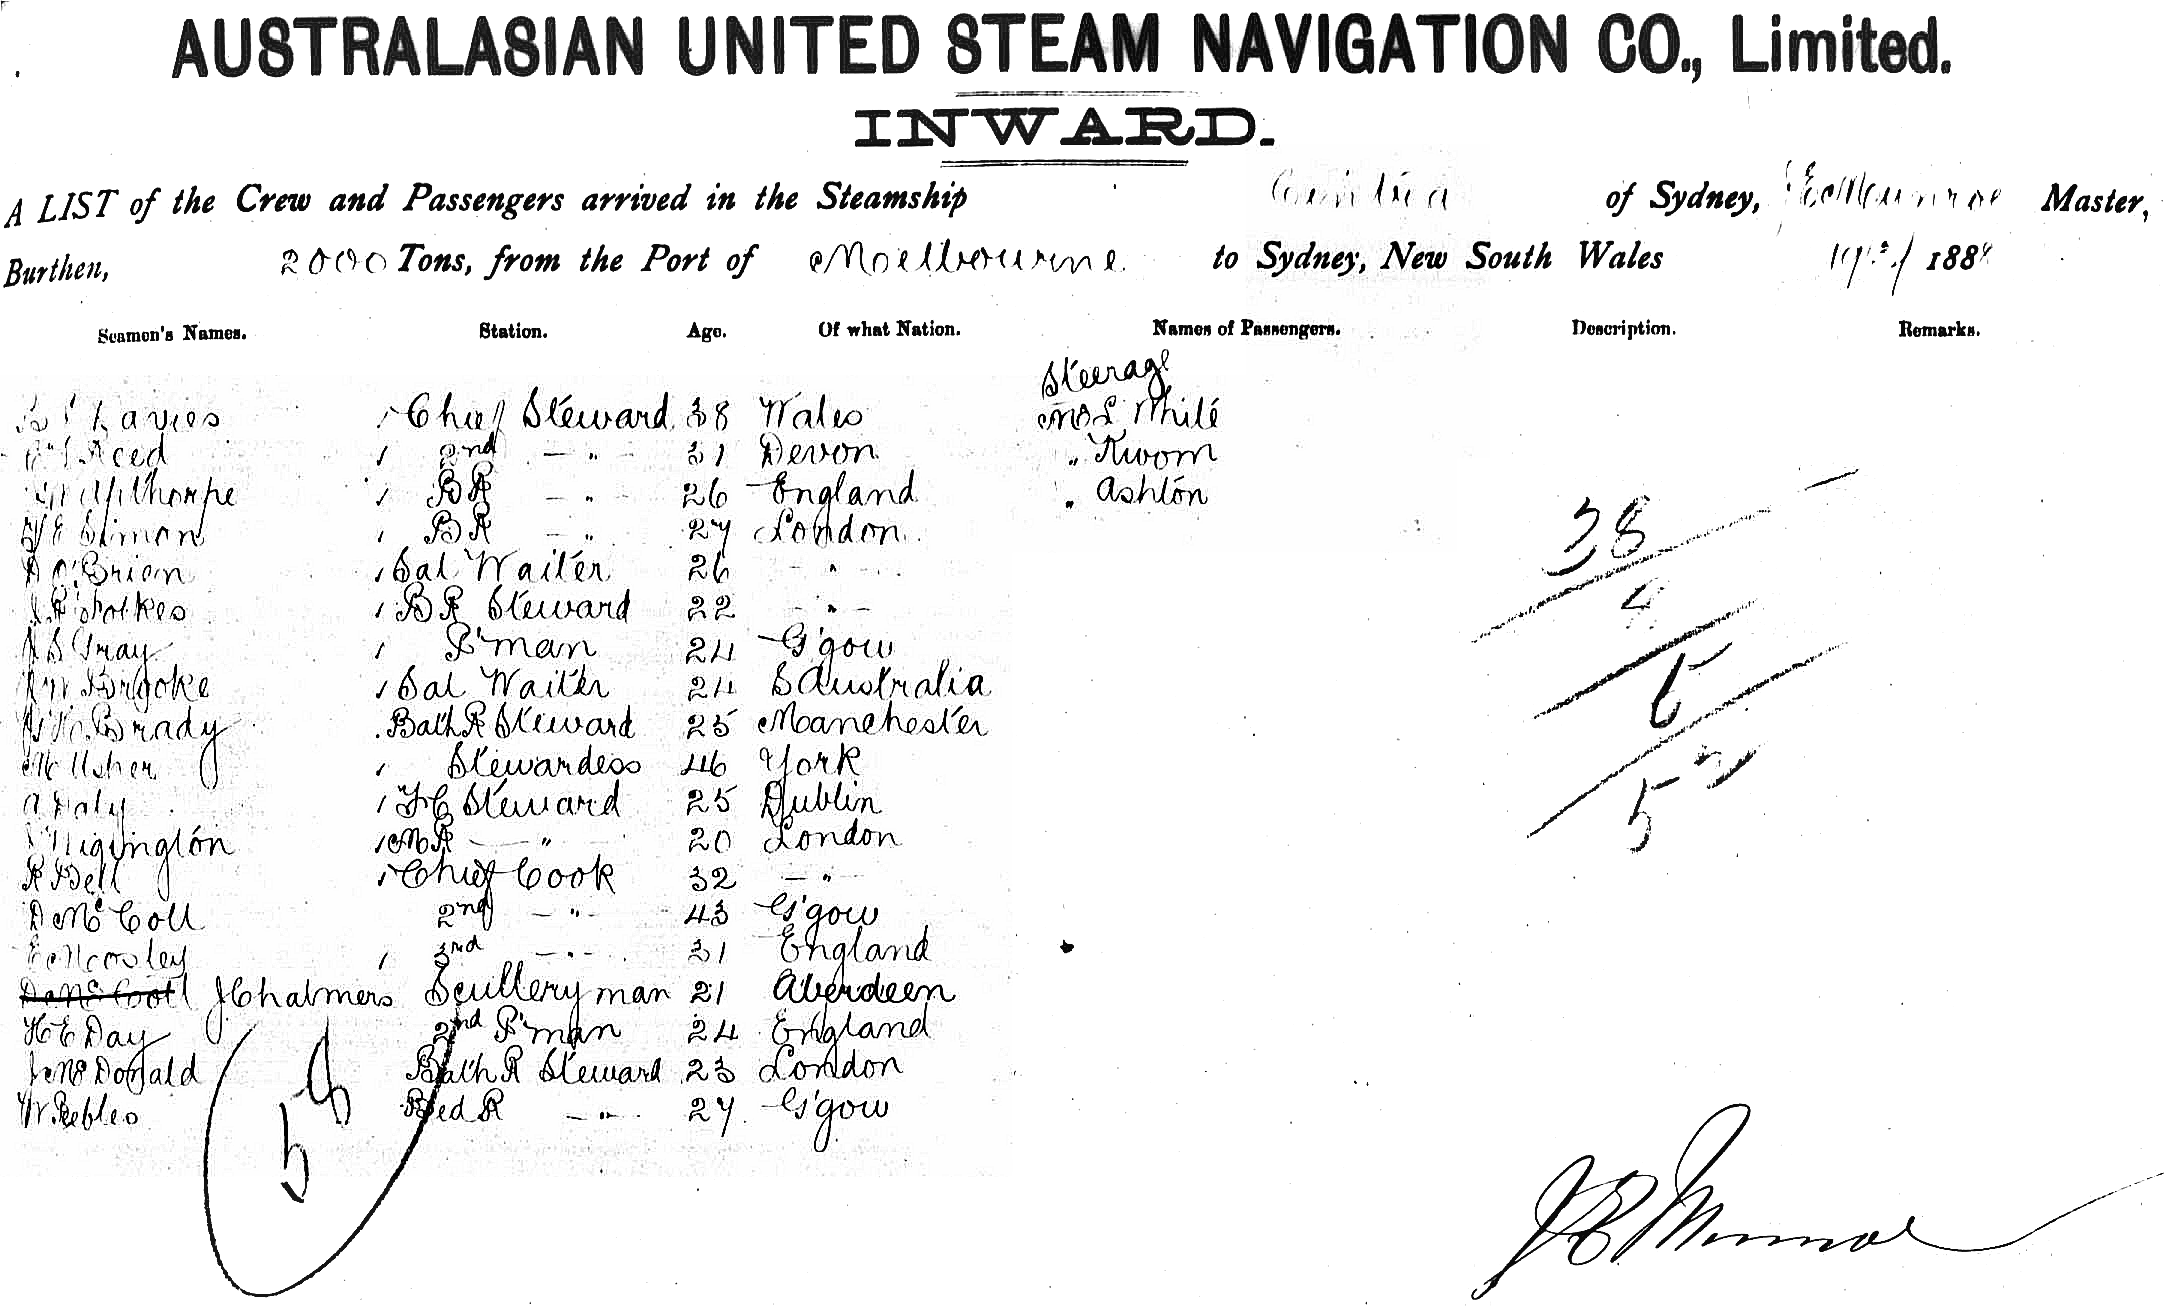 AUSTRALASIAN UNITED STEAM NAVIGATION CO., Limited.
INWARD.
A LIST of the Crew and Passengers arrived in the Steamship of Sydney, Munroe Master,
Burthen, 2000 Tons, from the Port of Melbourne to Sydney, New South Wales 188
Seamen's Names. Station. Age. Of what Nation. Names of Passengers. Description. Remarks.
Steerage
Davies Chief Steward 38 Wales White
Reed 2nd — " — 31 Devon "
BR — " 26 England " Ashton
Simon BR — " 27 London
D O'Brien Sal Waiter 26 — " —
Folkes BR Steward 22 — " —
Gray P'man 24 G'gow
Brooke Sal Waiter 24 S Australia
Brady Bath R Steward 25 Manchester
M Usher Stewardess 46 York
A Daly FC Steward 25 Dublin
MR — " 20 London
R Bell Chief Cook 32 — "
D McColl 2nd — " — 43 G'gow
3rd — " — 31 England
D McColl J Chalmers Scullery man 21 Aberdeen
H E Day 2nd P'man 24 England
J McDonald Bath R Steward 23 London
W Peebles Bed R — " — 27 G'gow
38
4
52
J E Munroe